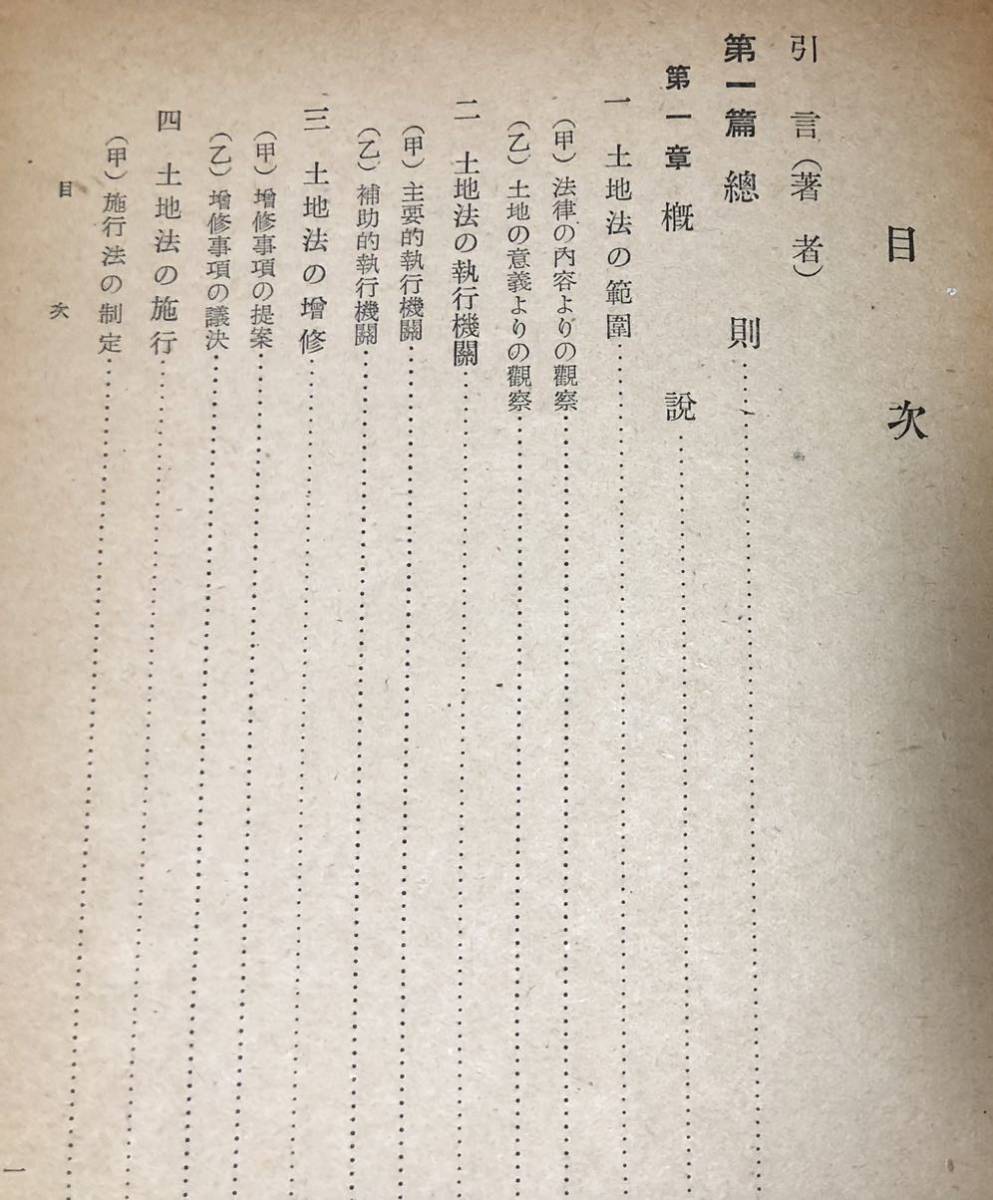 目次
引言(著者)
第一篇 總則
第一章 概說
一 土地法の範圍
(甲)法律の內容よりの觀察
(乙)土地の意義よりの觀察
二 土地法の執行機關
(甲)主要的執行機關
(乙)補助的執行機關
三 土地法の增修
(甲)增修事項の提案
(乙)增修事項の議決
四 土地法の施行
(甲)施行法の制定
目次
一